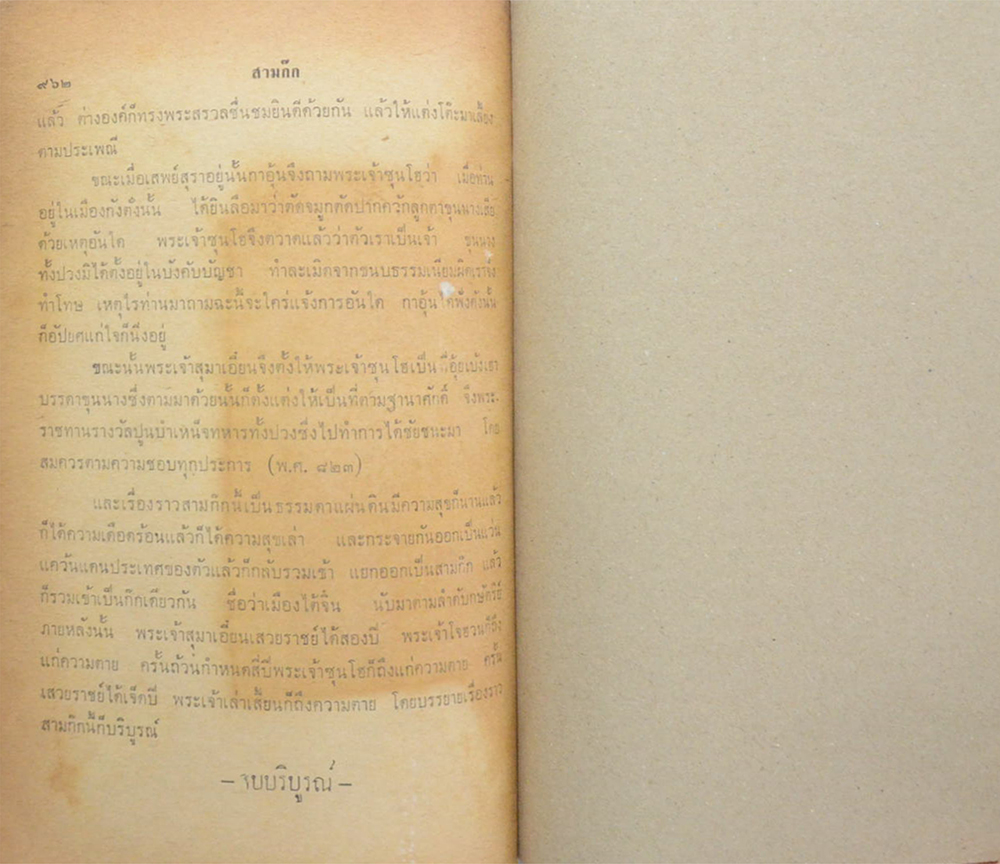 ๙๖๒
สามก๊ก
แล้ว ต่างองค์ก็ทรงพระสรวลชื่นชมยินดีด้วยกัน แล้วให้แต่งโต๊ะมาเลี้ยง
ตามประเพณี
ขณะเมื่อเสพย์สุราอยู่นั้นกาอุ้นจึงถามพระเจ้าซุนโฮว่า เมื่อท่าน
อยู่ในเมืองกังตั๋งนั้น ได้ยินลือมาว่าตัดจมูกตัดปากควักลูกตาขุนนางเสีย
ด้วยเหตุอันใด พระเจ้าซุนโฮจึงตวาดแล้วว่าตัวเราเป็นเจ้า ขุนนาง
ทั้งปวงมิได้ตั้งอยู่ในบังคับบัญชา ทำละเมิดจากขนบธรรมเนียมผิดเราจึง
ทำโทษ เหตุไรท่านมาถามฉะนี้จะใคร่แจ้งการอันใด กาอุ้นได้ฟังดังนั้น
ก็อัปยศแก่ใจก็นิ่งอยู่
ขณะนั้นพระเจ้าสุมาเอี๋ยนจึงตั้งให้พระเจ้าซุนโฮเป็นที่อุ้ยเบ้งเฮา
บรรดาขุนนางซึ่งตามมาด้วยนั้นก็ตั้งแต่งให้เป็นที่ตามฐานาศักดิ์ จึงพระ-
ราชทานรางวัลปูนบำเหน็จทหารทั้งปวงซึ่งไปทำการได้ชัยชนะมา โดย
สมควรตามความชอบทุกประการ (พ.ศ. ๘๒๓)
และเรื่องราวสามก๊กนี้เป็นธรรมดาแผ่นดินมีความสุขก็นานแล้ว
ก็ได้ความเดือดร้อนแล้วก็ได้ความสุขเล่า และกระจายกันออกเป็นแว่น
แคว้นแดนประเทศของตัวแล้วก็กลับรวมเข้า แยกออกเป็นสามก๊ก แล้ว
ก็รวมเข้าเป็นก๊กเดียวกัน ชื่อว่าเมืองไต้จิ๋น นับมาตามลำดับกษัตริย์
ภายหลังนั้น พระเจ้าสุมาเอี๋ยนเสวยราชย์ได้สองปี พระเจ้าโจฮวนก็ถึง
แก่ความตาย ครั้นถ้วนกำหนดสี่ปีพระเจ้าซุนโฮก็ถึงแก่ความตาย ครั้น
เสวยราชย์ได้เจ็ดปี พระเจ้าเล่าเสี้ยนก็ถึงความตาย โดยบรรยายเรื่องราว
สามก๊กนี้ก็บริบูรณ์
– จบบริบูรณ์ –